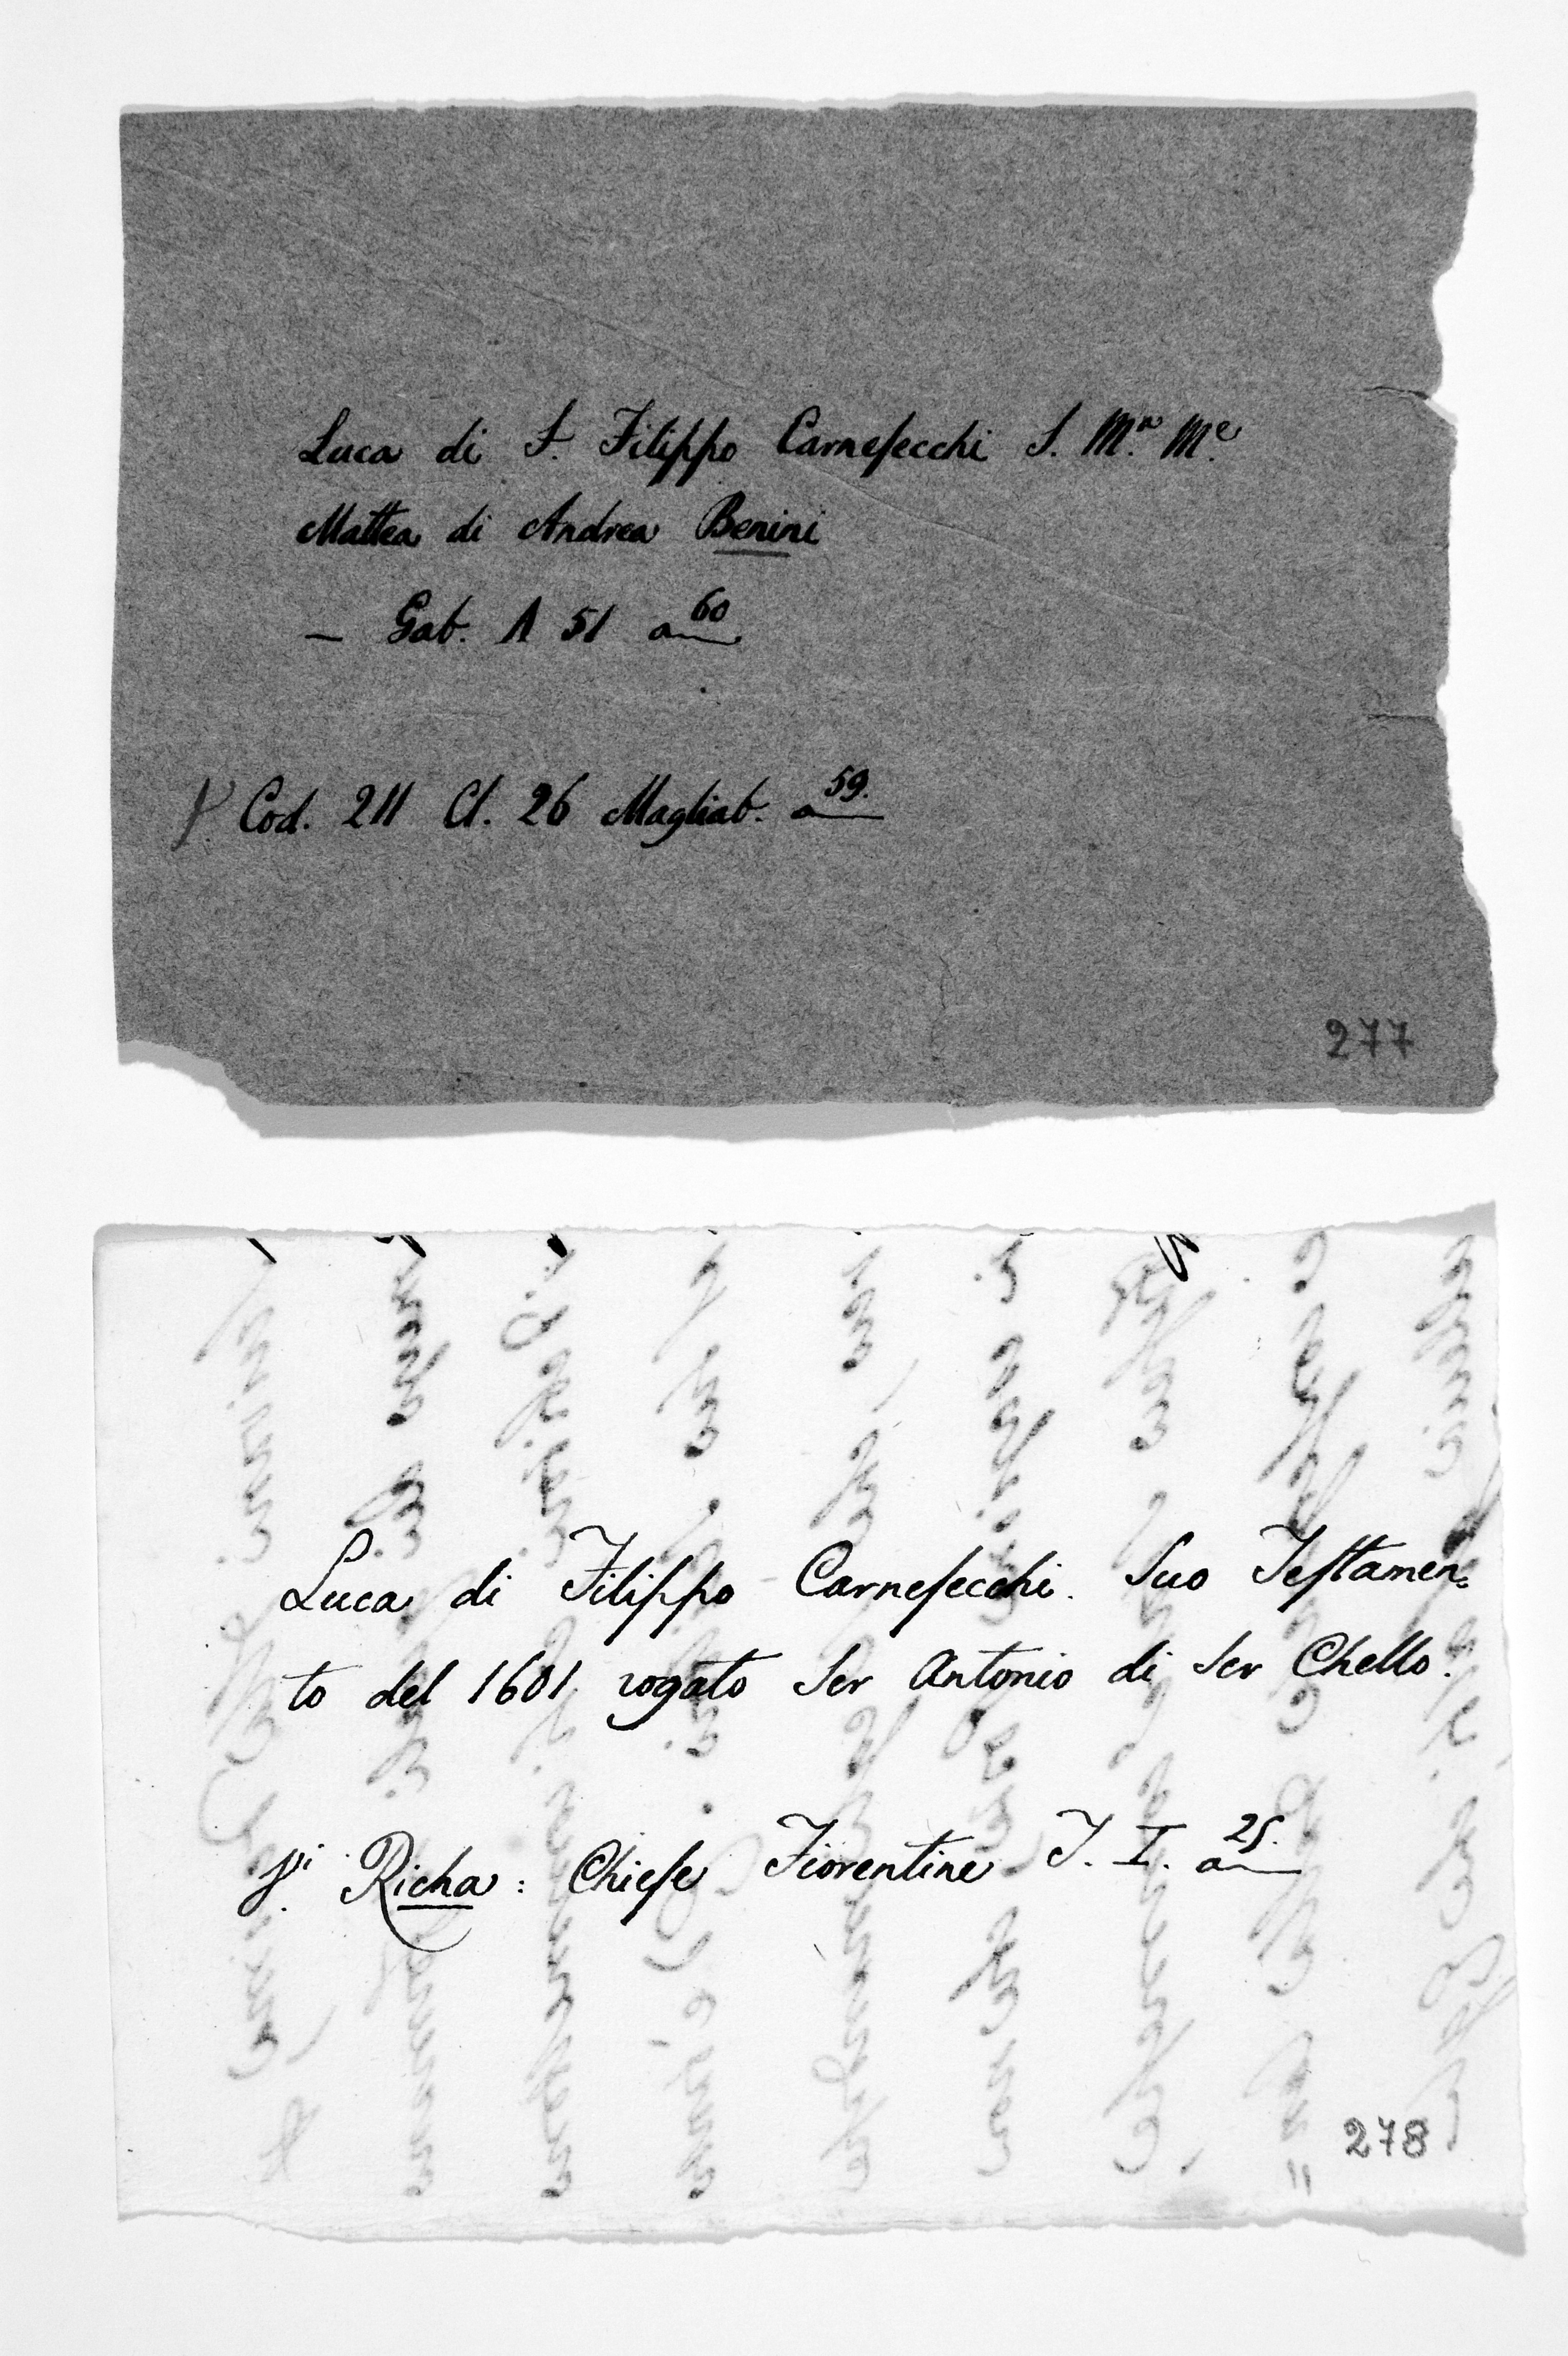 Luca di S. Filippo Carnesecchi S. Mª. Mᵉ.
Mattea di Andrea Benini
— Gab. A 51 a 60
Cod. 211 Cl. 26 Magliab. a 59.
277
Luca di Filippo Carnesecchi. Suo Testamen=
to del 1601 rogato Ser Antonio di Ser Chello.
Richa: Chiese Fiorentine T. I. a 25.
278